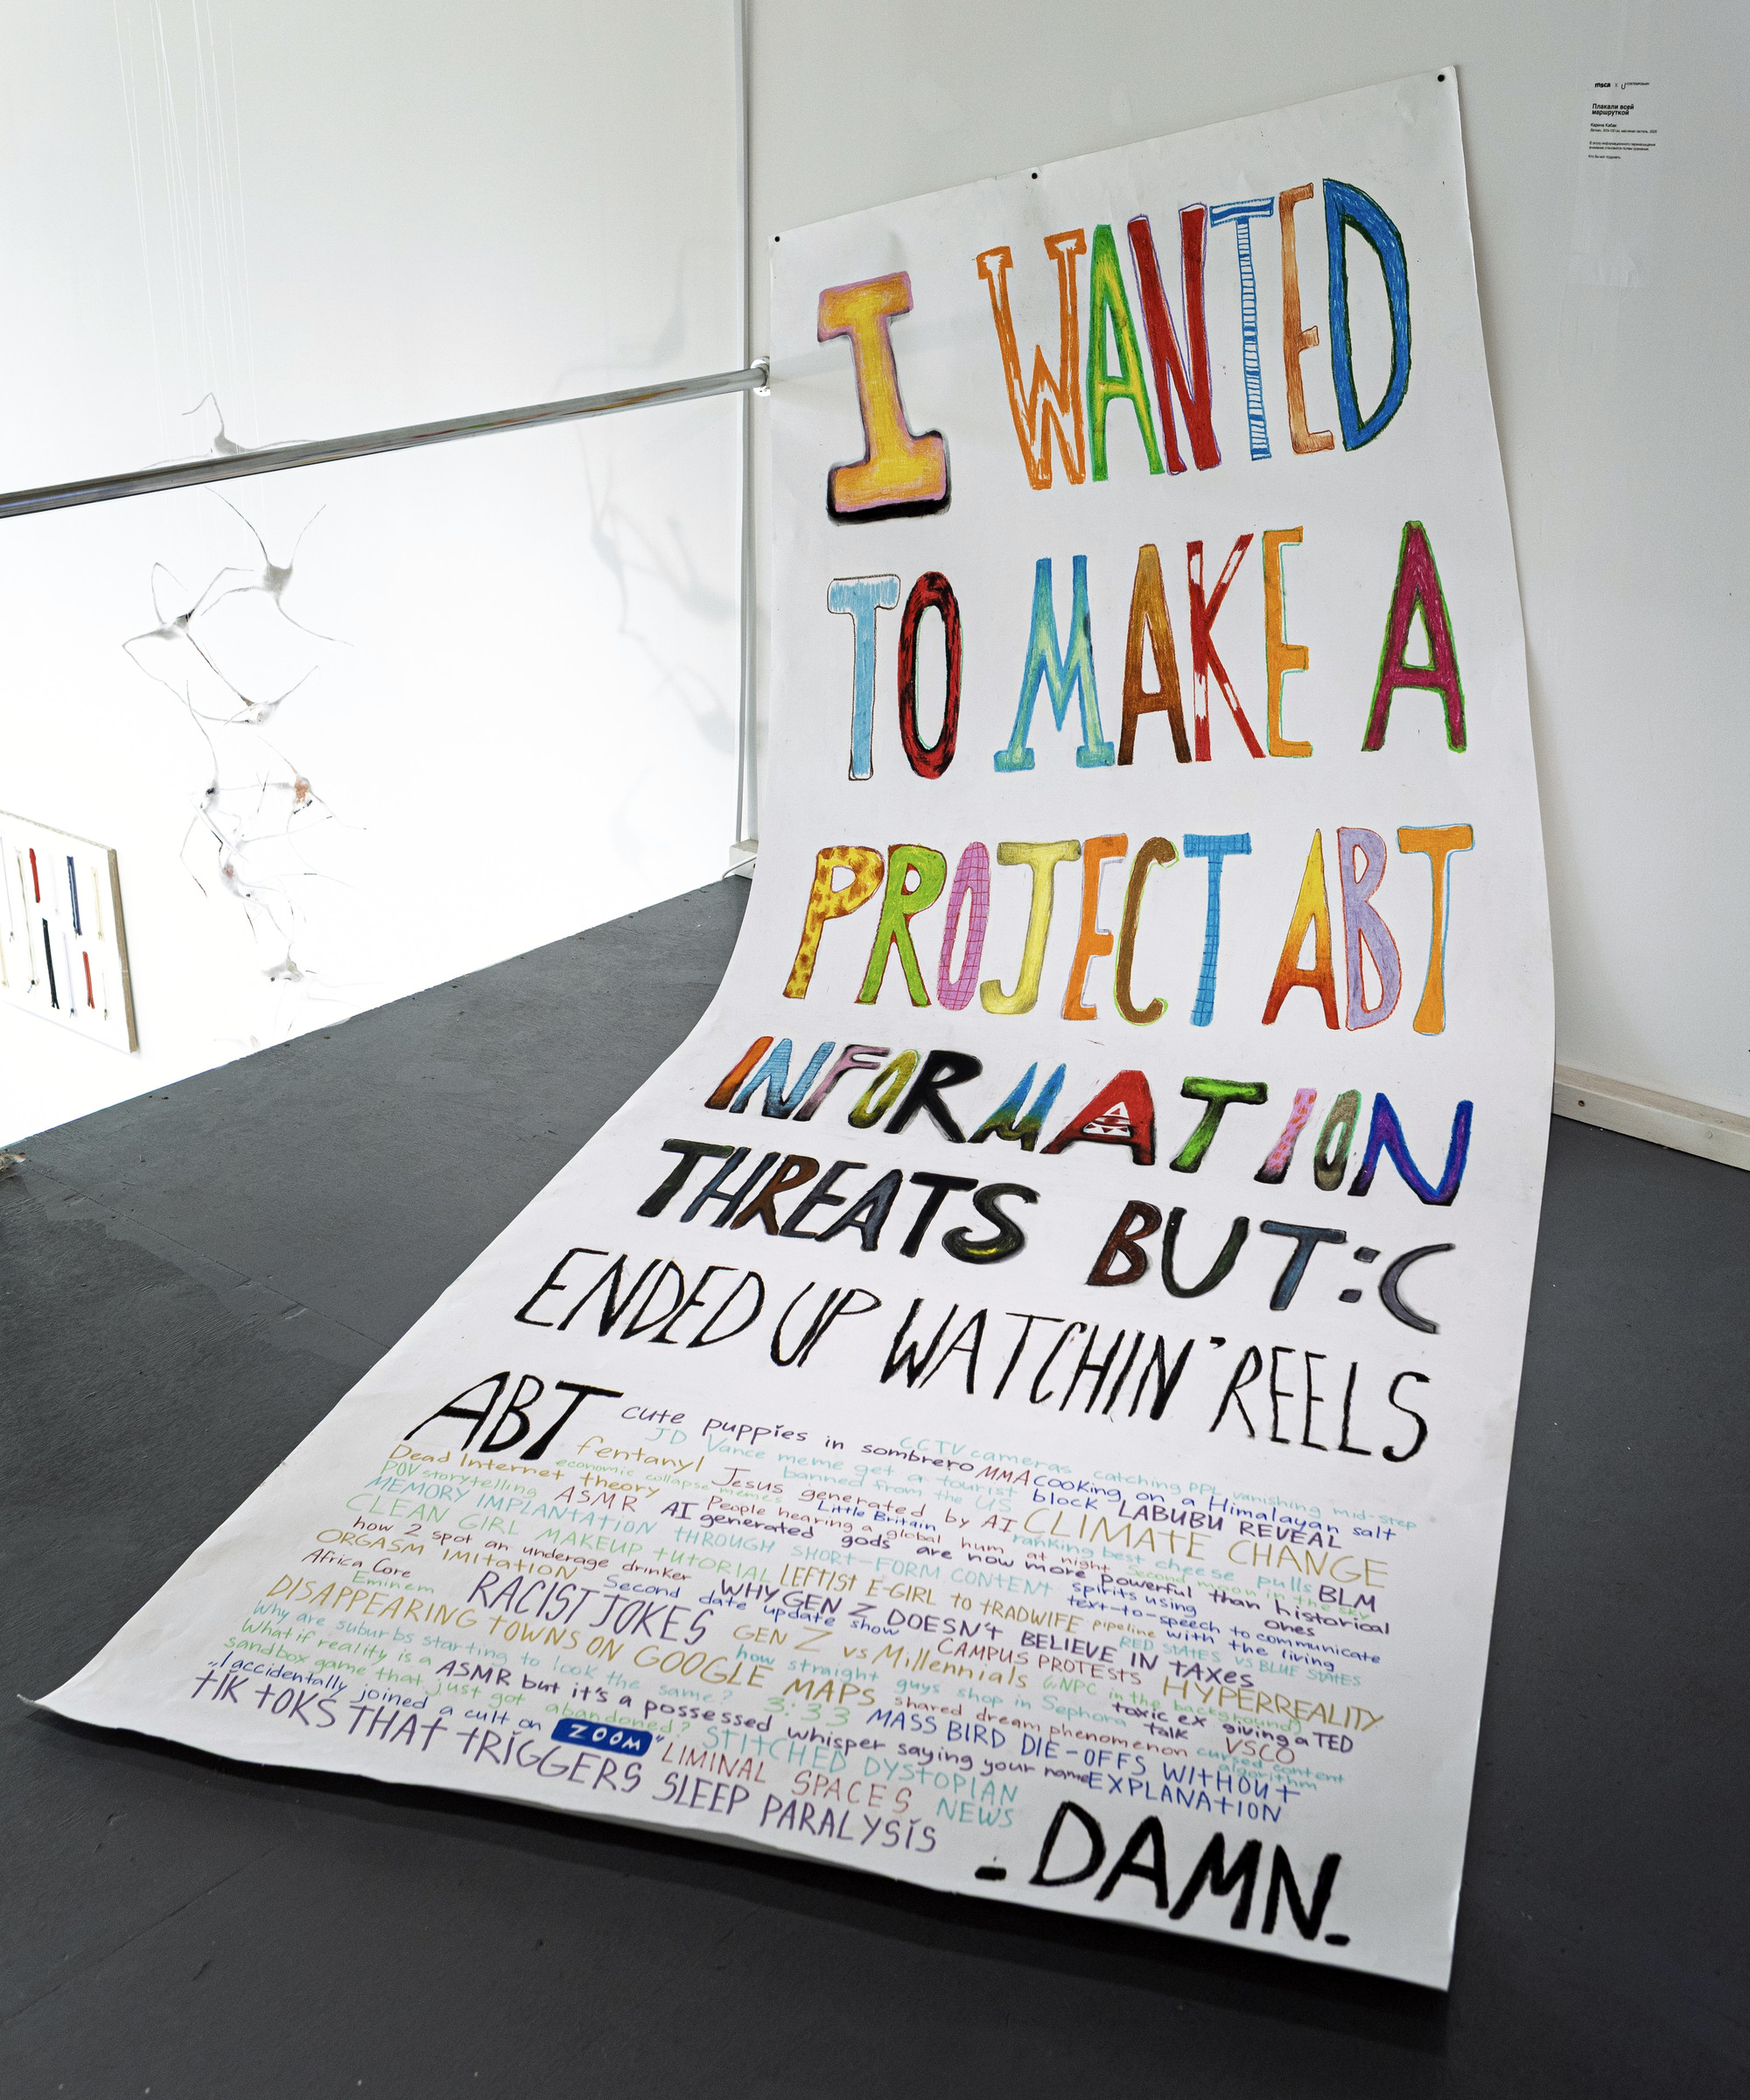 I WANTED
TO MAKE A
PROJECT ABT
INFORMATION
THREATS BUT :C
ENDED UP WATCHIN' REELS
ABT cute puppies in sombrero MMA cooking on a Himalayan salt block
CCTV cameras catching PPL vanishing mid-step
JD Vance meme get a tourist banned from the US
fentanyl
LABUBU REVEAL
Dead Internet theory
economic collapse memes
Jesus generated by AI
CLIMATE CHANGE
POV storytelling
ASMR
Little Britain
People hearing a global hum at night
ranking best cheese pulls
Second moon in the sky
BLM
MEMORY IMPLANTATION THROUGH SHORT-FORM CONTENT
AI generated gods are now more powerful than historical ones
CLEAN GIRL MAKEUP tUTORIAL
LEFTISt E-GIRL to tRADWIFE pipeline
spirits using text-to-speech to communicate with the living
how 2 spot an underage drinker
ORGASM IMItATION
Second date update show
WHY GEN Z DOESN't BELIEVE IN tAXES
RED StAtES VS BLUE StAtES
Africa Core
Eminem
RACIST JOKES
GEN Z vs Millennials
CAMPUS PROTESTS
HYPERREALITY
DISAPPEARING tOWNS ON GOOGLE MAPS
how straight guys shop in Sephora
(NPC in the background)
toxic ex giving a TED talk
Why are suburbs starting to look the same?
3:33
shared dream phenomenon
VSCO
What if reality is a sandbox game that just got abandoned?
ASMR but it's a possessed whisper saying your name
MASS BIRD DIE-OFFS WITHOUt EXPLANAtION
cursed content algorithm
"I accidentally joined a cult on zoom"
STITCHED DYSTOPIAN NEWS
LIMINAL SPACES
tIK tOKS THAt tRIGGERS SLEEP PARALYSIS
- DAMN.-
msca x
Плакали всей
маршруткой